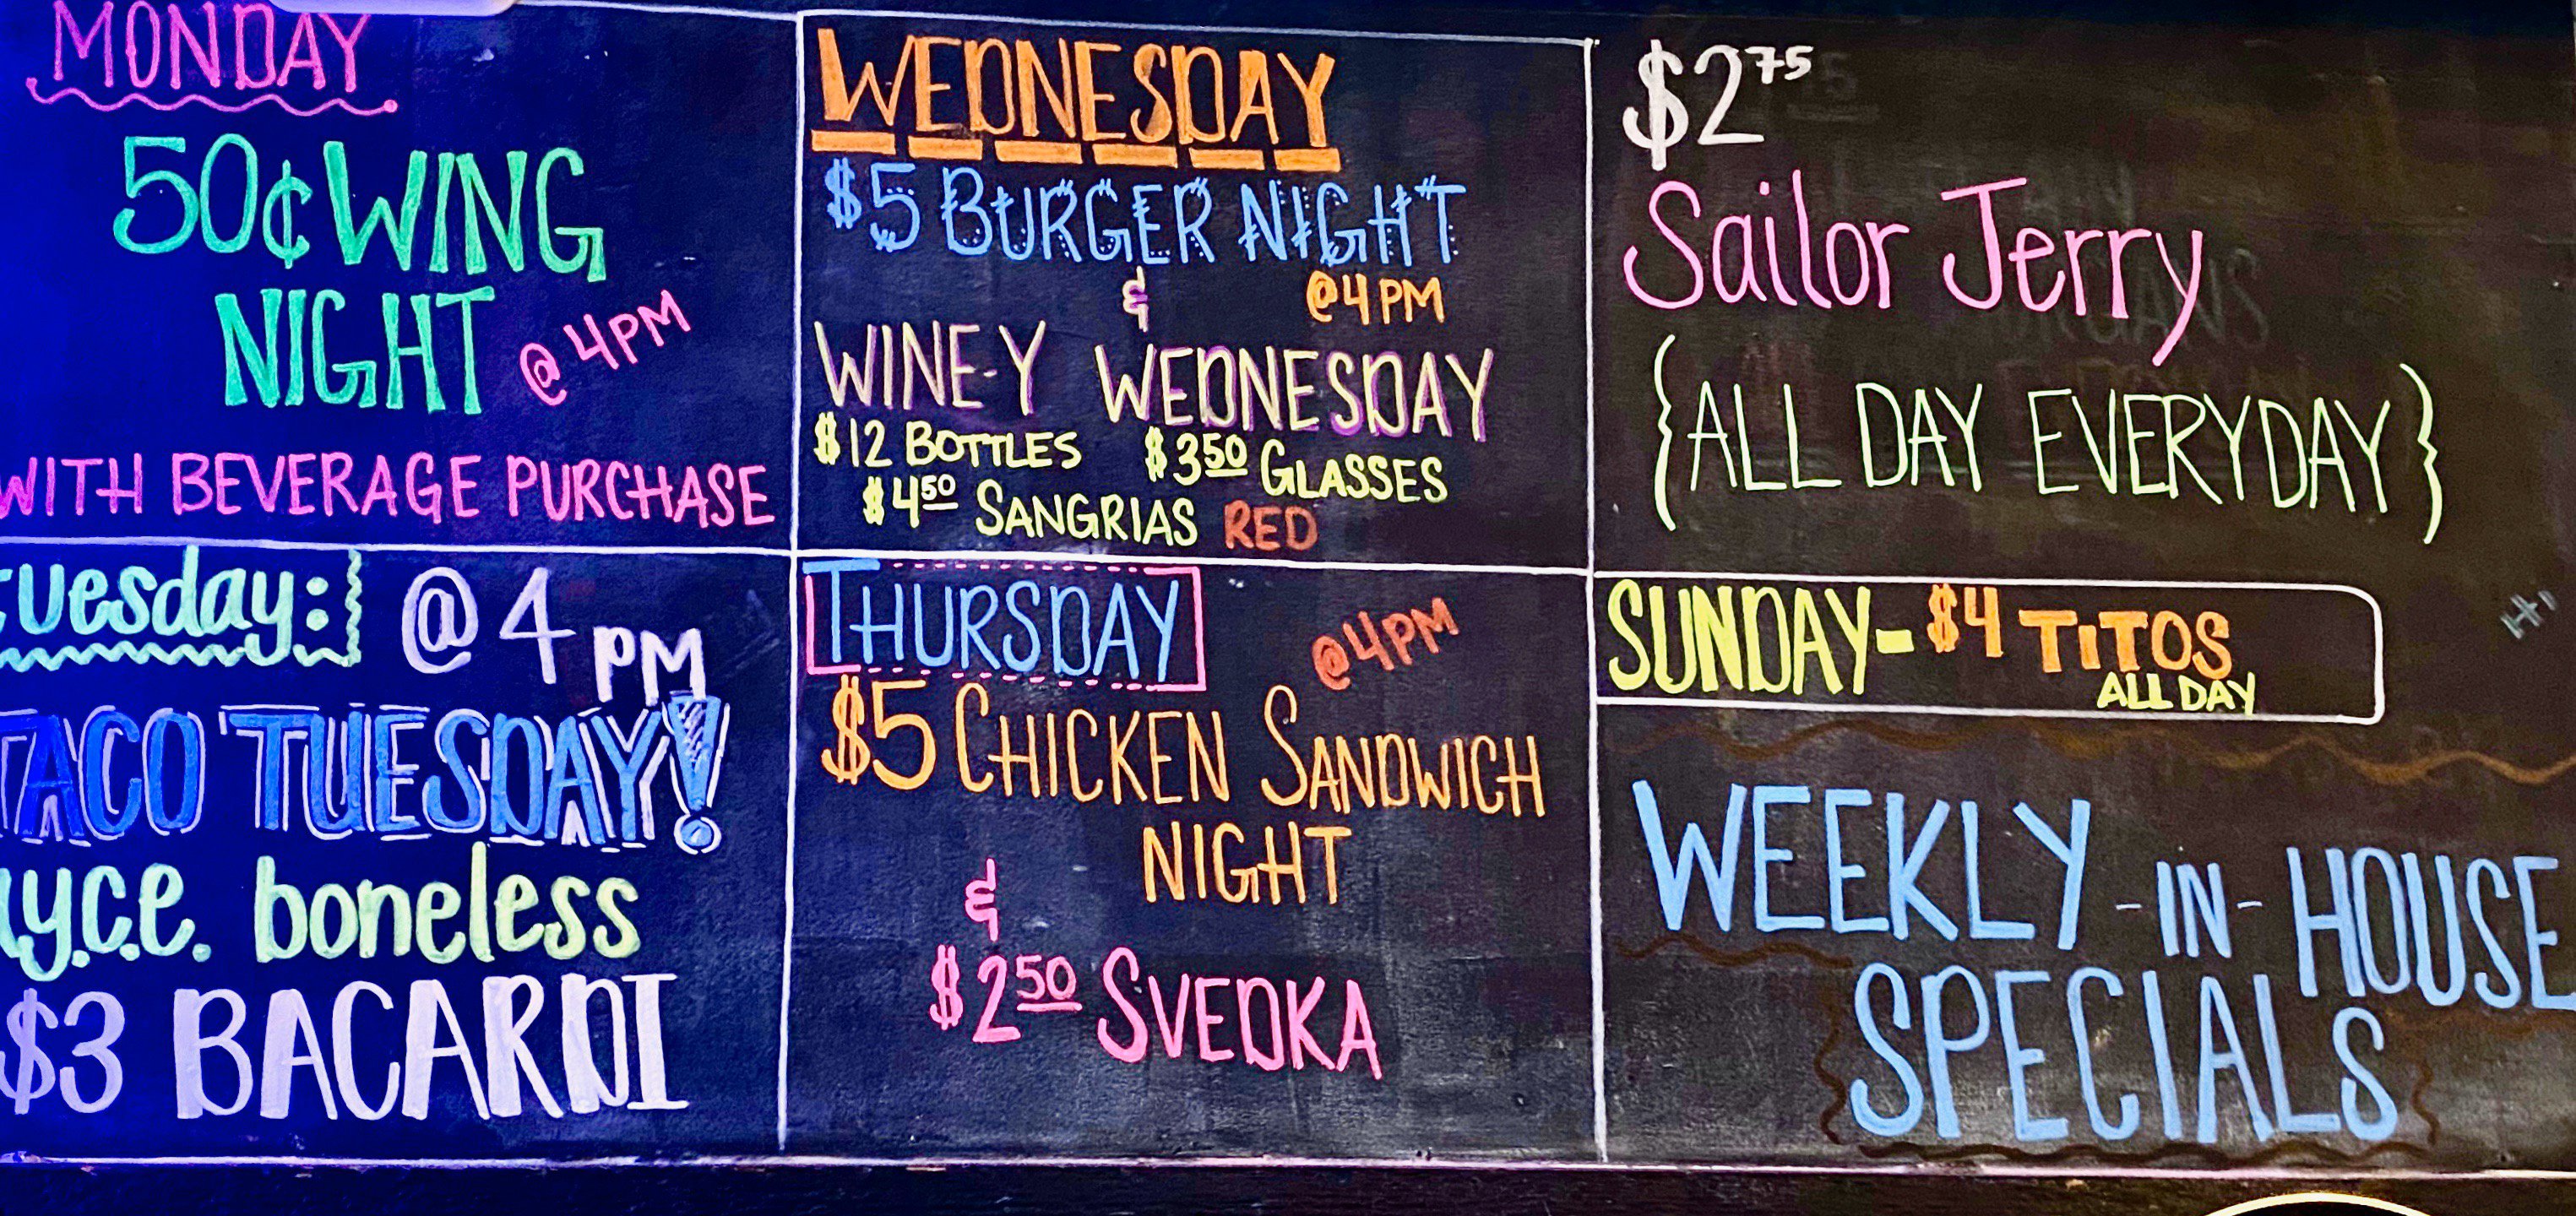 MONDAY
50¢ WING
NIGHT @ 4PM
WITH BEVERAGE PURCHASE
tuesday: @ 4 PM
TACO TUESDAY!
a.y.c.e. boneless
$3 BACARDI
WEDNESDAY
$5 BURGER NIGHT
& @ 4 PM
WINE-Y WEDNESDAY
$12 BOTTLES $3.50 GLASSES
$4.50 SANGRIAS RED
THURSDAY @ 4PM
$5 CHICKEN SANDWICH
NIGHT
&
$2.50 SVEDKA
$2.75
Sailor Jerry
{ALL DAY EVERYDAY}
SUNDAY- $4 TITOS
ALL DAY
Hi
WEEKLY -IN- HOUSE
SPECIALS